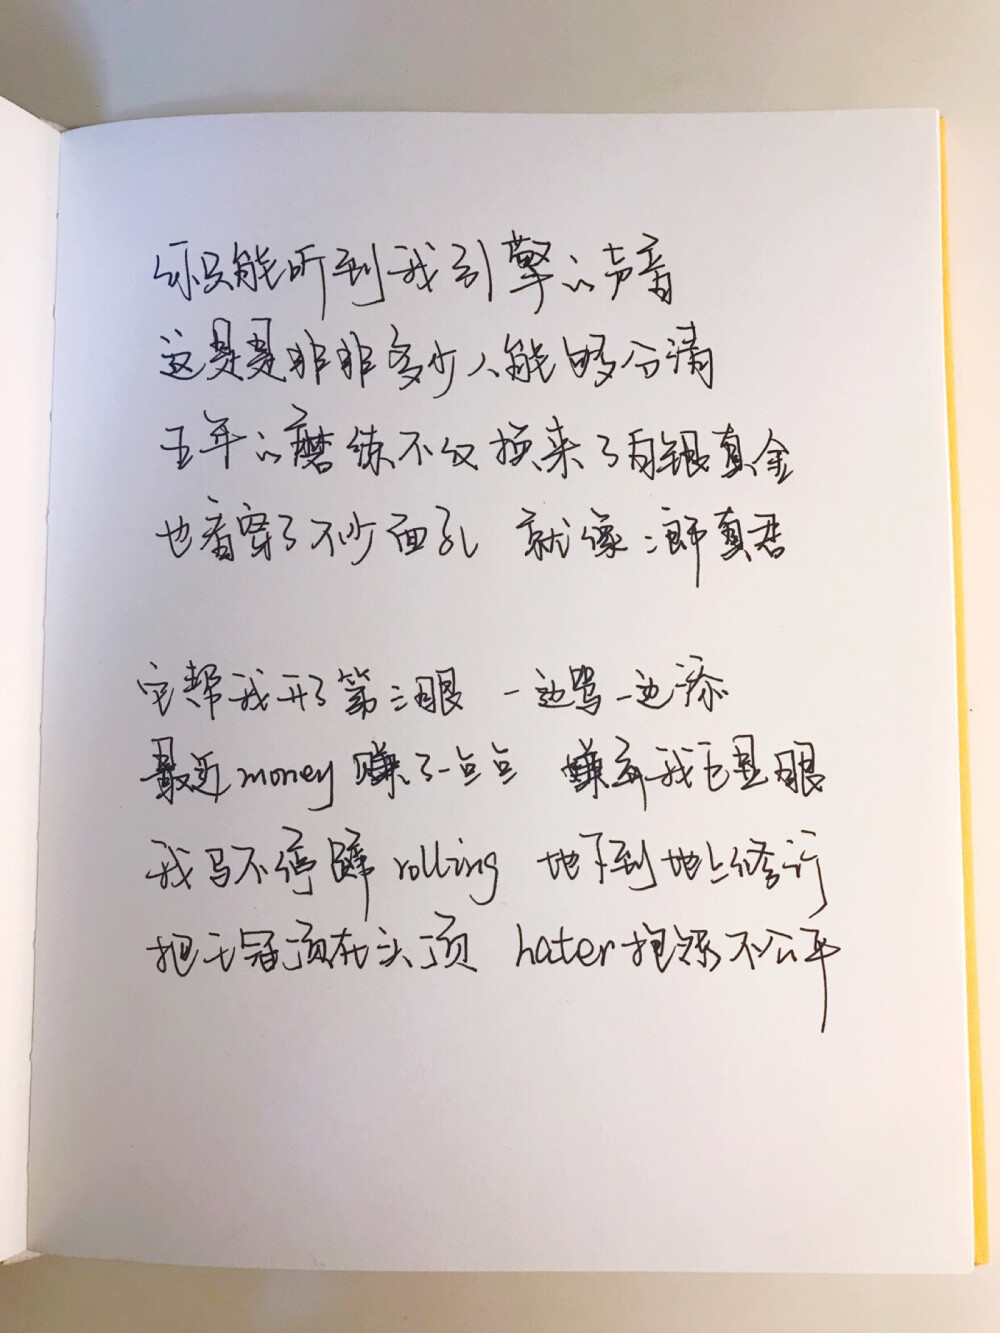 你只能听到我引擎的声音
这是是非非多少人能够分清
五年的磨练不仅换来了白银真金
也看穿了不少面孔 就像二郎真君
它帮我开了第三眼 一边骂一边添
最近money赚了一点点 赚到我已显眼
我马不停蹄rolling 地下到地上修行
把王冠顶在头顶 hater抱怨不公平